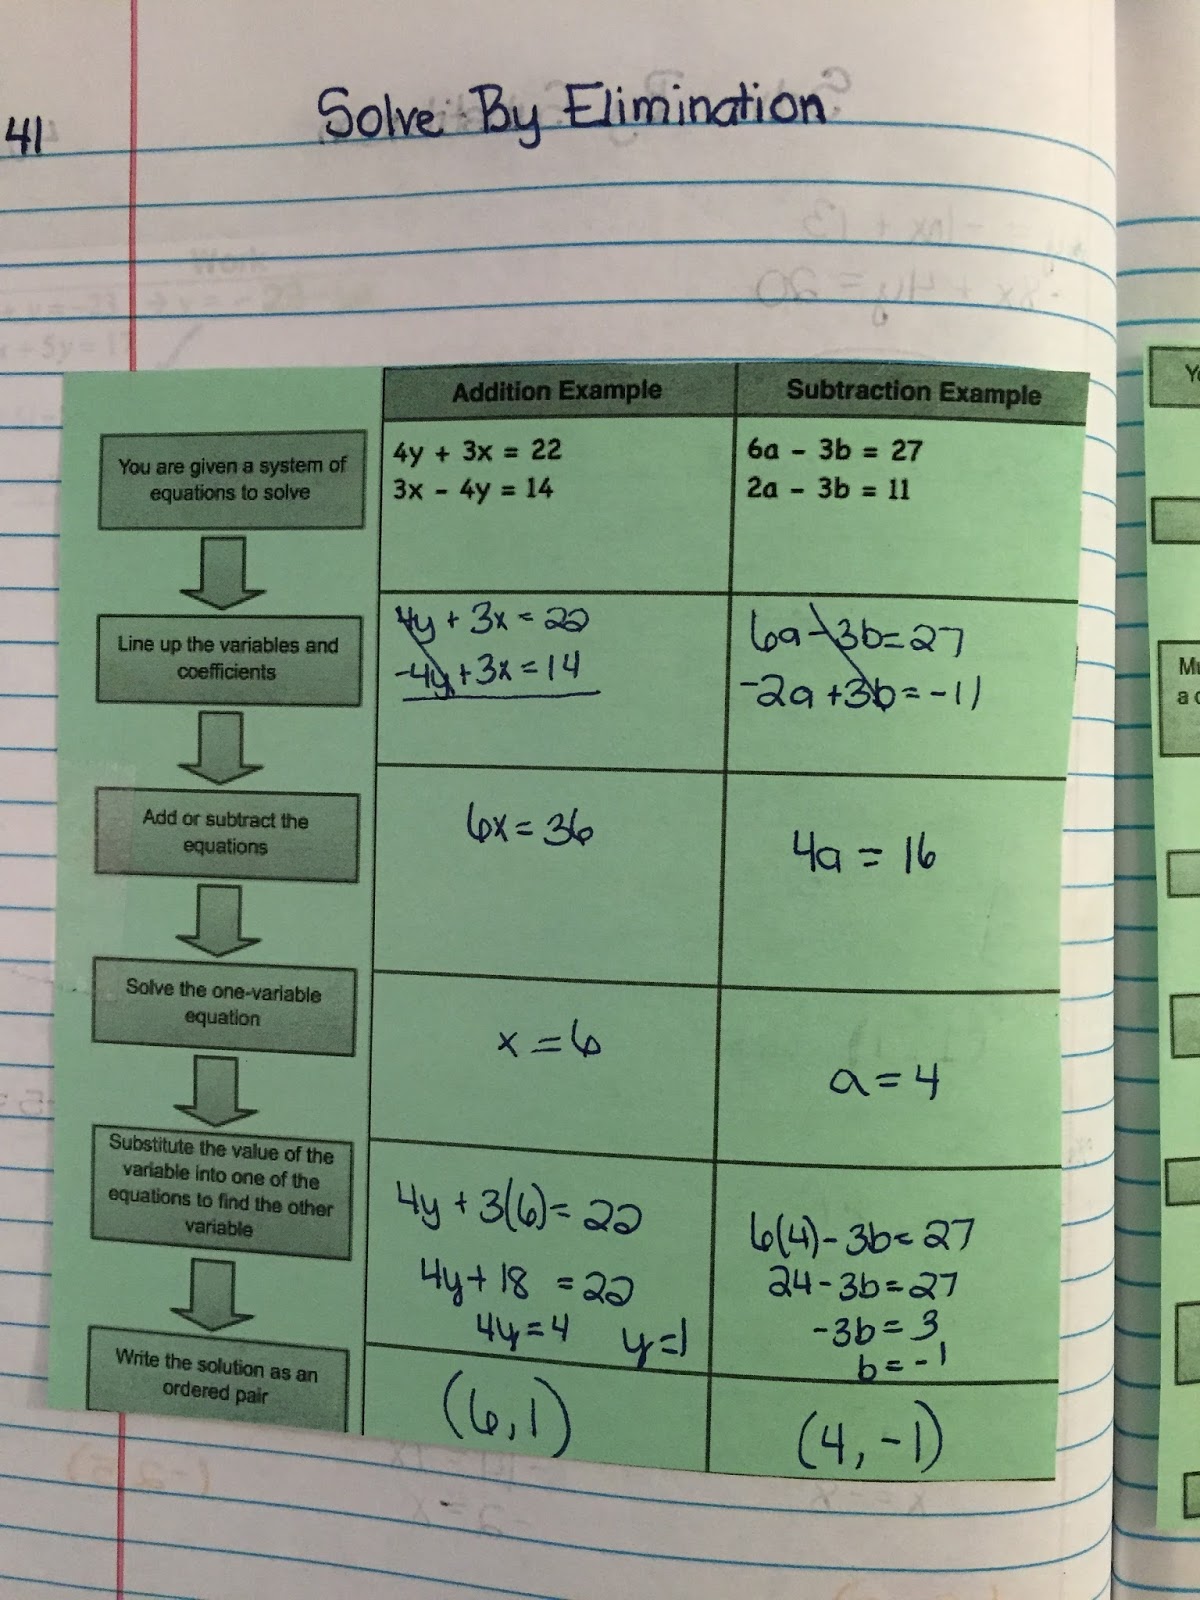 41
Solve By Elimination
Addition Example
Subtraction Example
You are given a system of
equations to solve
4y + 3x = 22
3x - 4y = 14
6a - 3b = 27
2a - 3b = 11
Line up the variables and
coefficients
4y + 3x = 22
-4y + 3x = 14
6a - 3b = 27
-2a + 3b = -11
Add or subtract the
equations
6x = 36
4a = 16
Solve the one-variable
equation
x = 6
a = 4
Substitute the value of the
variable into one of the
equations to find the other
variable
4y + 3(6) = 22
4y + 18 = 22
4y = 4 y = 1
6(4) - 3b = 27
24 - 3b = 27
-3b = 3
b = -1
Write the solution as an
ordered pair
(6, 1)
(4, -1)